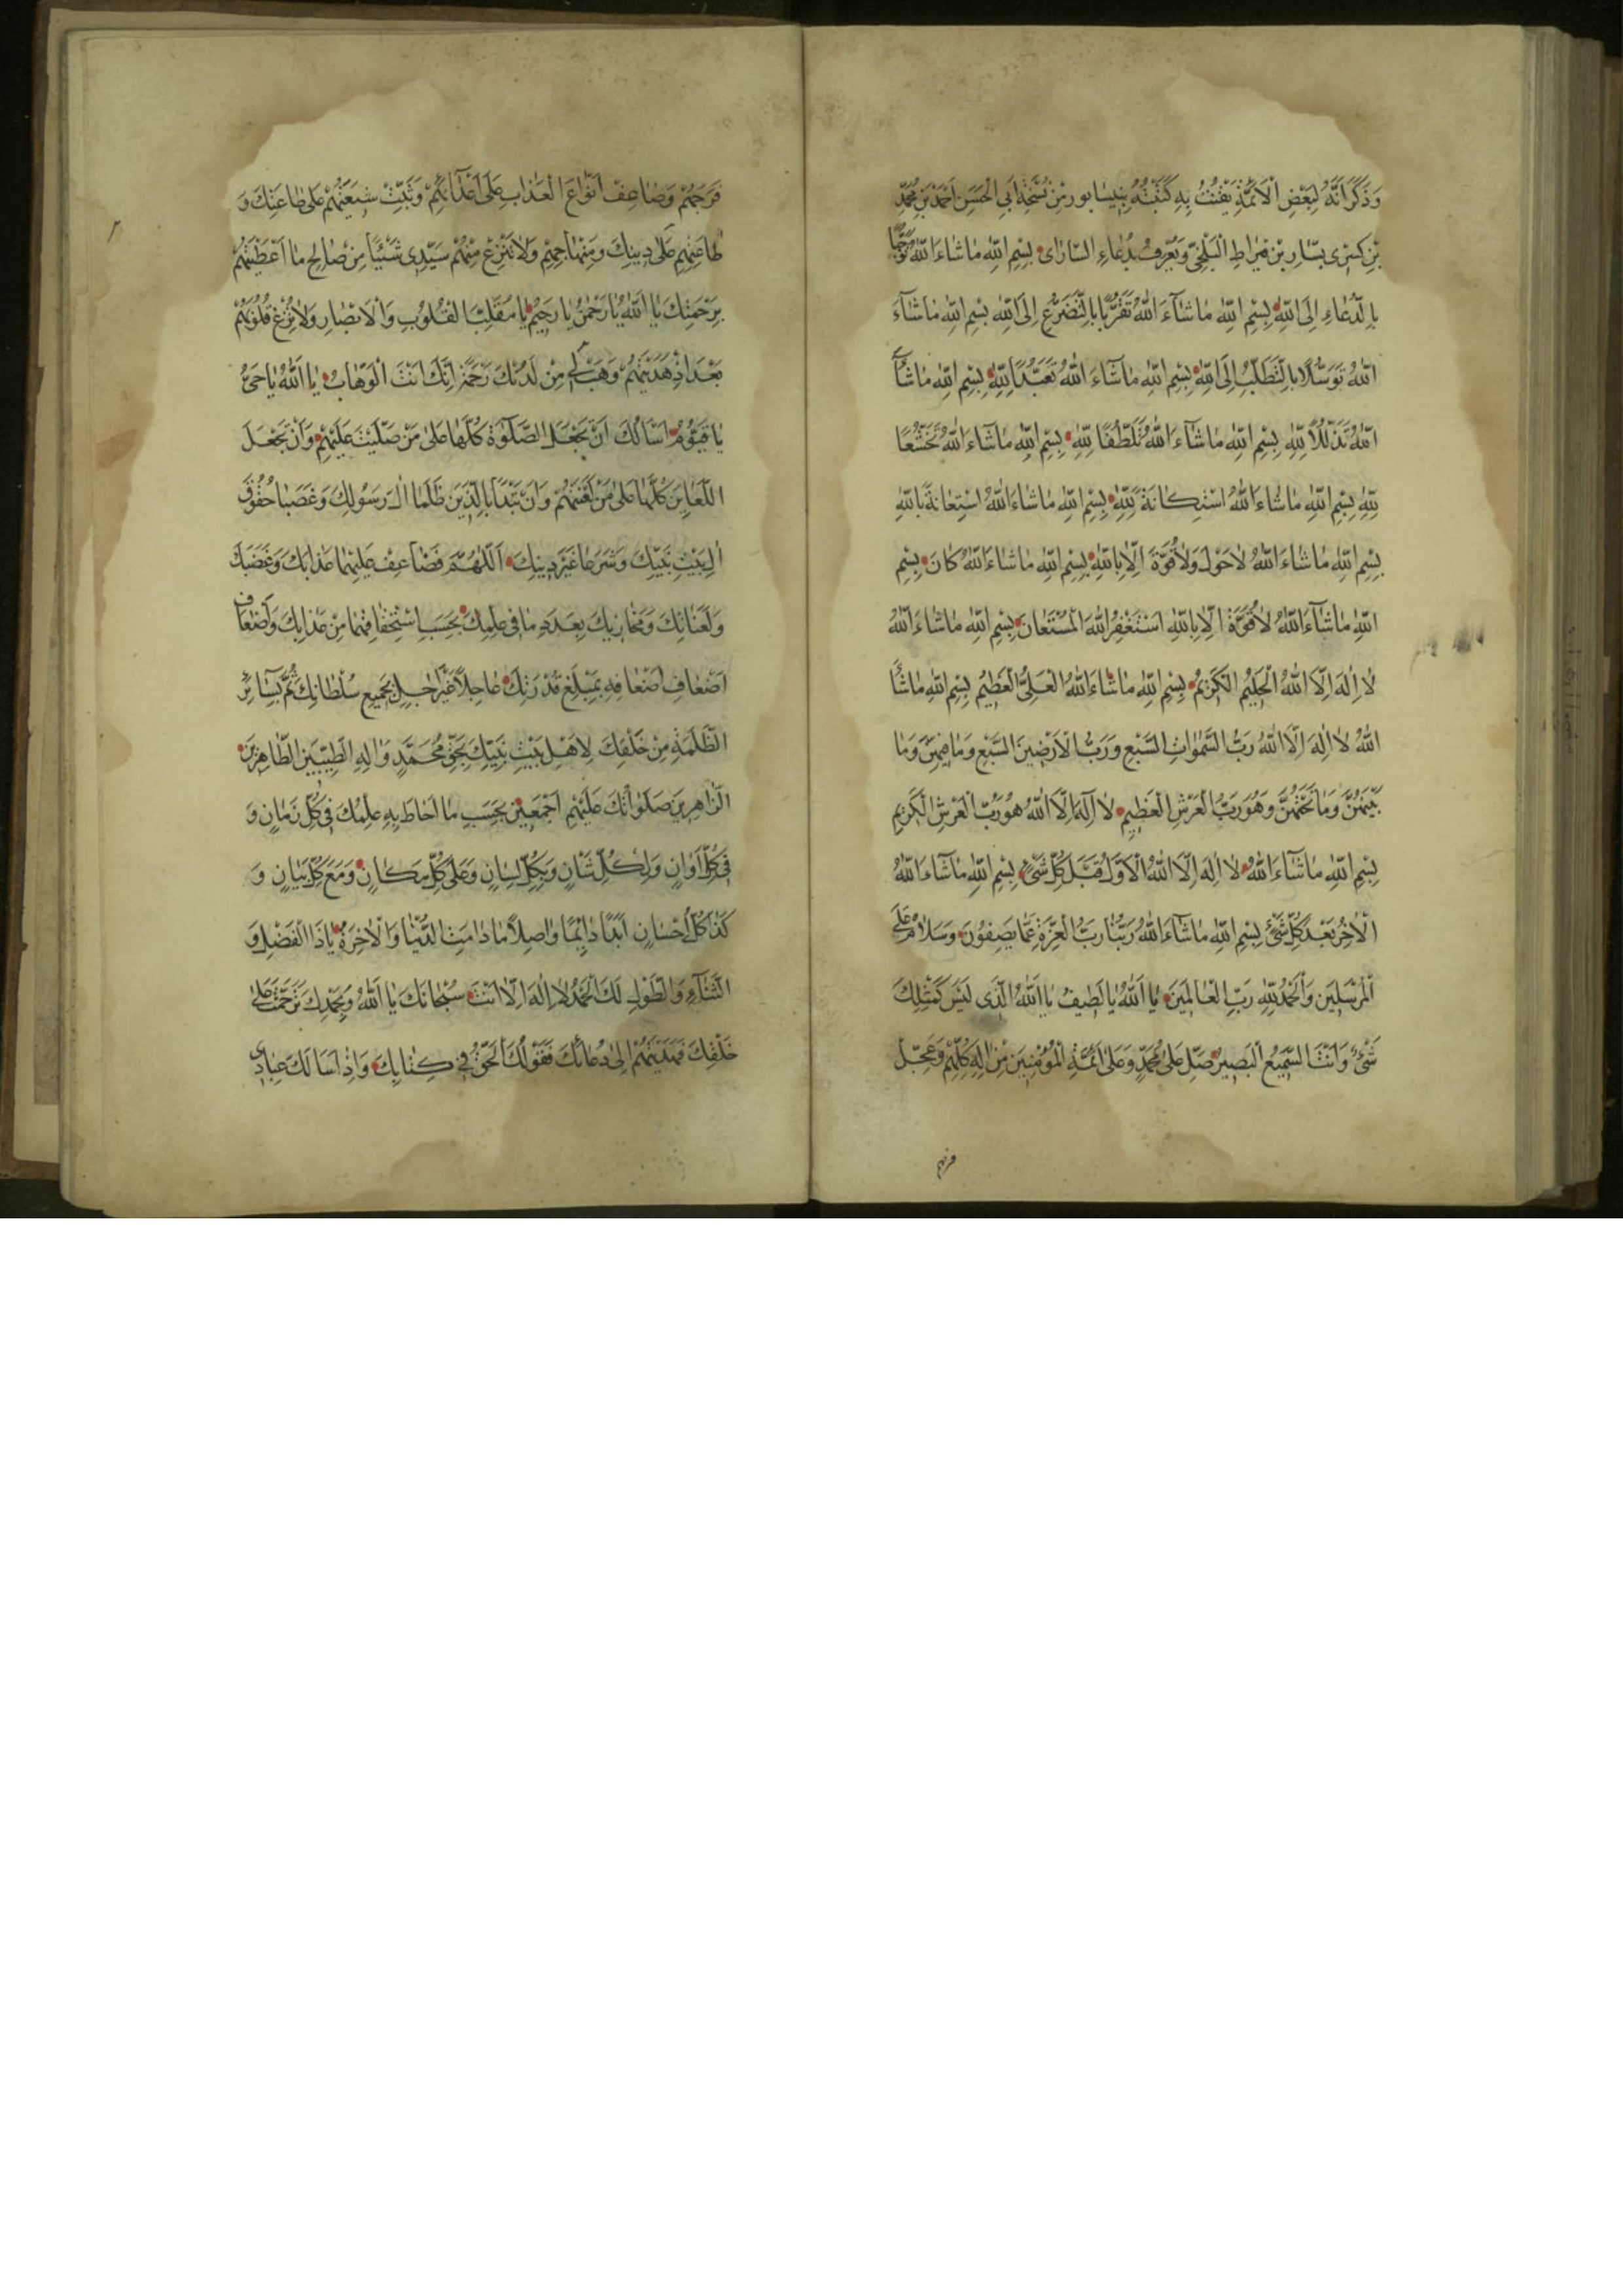 وَذَكَرَ اَنَّهُ لِبَعْضِ الْاَئِمَّةِ يَقْنُتُ بِهِ كَتَبْتُهُ بِنِيسابور مِنْ نُسْخَةِ اَبِي الْحَسَنِ اَحْمَدَ بْنِ مُحَمَّدِ
بْنِ كِسْرٰى بَسّارِ بْنِ قيراطِ الْبَلْخِيّ وَيُعْرَفُ بِدُعاءِ السّارٰاى بِسْمِ اللّٰهِ ماشاءَ اللّٰهُ تَوَجُّهًا
بِالدُّعاءِ اِلَى اللّٰهِ بِسْمِ اللّٰهِ ماشآءَ اللّٰهُ تَقَرُّبًا بِالتَّضَرُّعِ اِلَى اللّٰهِ بِسْمِ اللّٰهِ ماشآءَ
اللّٰهُ تَوَسُّلًا بِالتَّطَلُّبِ اِلَى اللّٰهِ بِسْمِ اللّٰهِ ماشآءَ اللّٰهُ تَعَبُّدًا لِلّٰهِ بِسْمِ اللّٰهِ ماشآءَ
اللّٰهُ تَذَلُّلًا لِلّٰهِ بِسْمِ اللّٰهِ ماشآءَ اللّٰهُ تَلَطُّفًا لِلّٰهِ بِسْمِ اللّٰهِ ماشآءَ اللّٰهُ تَخَشُّعًا
لِلّٰهِ بِسْمِ اللّٰهِ ماشاءَ اللّٰهُ اسْتِكانَةً لِلّٰهِ بِسْمِ اللّٰهِ ماشاءَ اللّٰهُ اسْتِعانَةً بِاللّٰهِ
بِسْمِ اللّٰهِ ماشاءَ اللّٰهُ لاحَوْلَ وَلاقُوَّةَ اِلّا بِاللّٰهِ بِسْمِ اللّٰهِ ماشاءَ اللّٰهُ كانَ بِسْمِ
اللّٰهِ ماشآءَ اللّٰهُ لاقُوَّةَ اِلّا بِاللّٰهِ اَسْتَغْفِرُ اللّٰهَ الْمُسْتَعانَ بِسْمِ اللّٰهِ ماشاءَ اللّٰهُ
لا اِلٰهَ اِلَّا اللّٰهُ الْحَليمُ الْكَريمُ بِسْمِ اللّٰهِ ماشاءَ اللّٰهُ الْعَلِيُّ الْعَظيمُ بِسْمِ اللّٰهِ ماشآءَ
اللّٰهُ لا اِلٰهَ اِلَّا اللّٰهُ رَبُّ السَّمٰواتِ السَّبْعِ وَرَبُّ الْاَرَضينَ السَّبْعِ وَما فيهِنَّ وَما
بَيْنَهُنَّ وَما تَحْتَهُنَّ وَهُوَ رَبُّ الْعَرْشِ الْعَظيمِ لا اِلٰهَ اِلَّا اللّٰهُ هُوَ رَبُّ الْعَرْشِ الْكَريمِ
بِسْمِ اللّٰهِ ماشآءَ اللّٰهُ لا اِلٰهَ اِلَّا اللّٰهُ الْاَوَّلُ قَبْلَ كُلِّ شَيْءٍ بِسْمِ اللّٰهِ ماشآءَ اللّٰهُ
الْآخِرُ بَعْدَ كُلِّ شَيْءٍ بِسْمِ اللّٰهِ ماشآءَ اللّٰهُ رَبُّنا رَبُّ الْعِزَّةِ عَمّا يَصِفُونَ وَسَلامٌ عَلَى
الْمُرْسَلينَ وَالْحَمْدُ لِلّٰهِ رَبِّ الْعالَمينَ يا اَللّٰهُ يا لَطيفُ يا اَللّٰهُ الَّذى لَيْسَ كَمِثْلِكَ
شَيْءٌ وَاَنْتَ السَّميعُ الْبَصيرُ صَلِّ عَلٰى مُحَمَّدٍ وَعَلٰى اَئِمَّةِ الْمُؤْمِنينَ مِنْ اٰلِهِ كُلِّهِمْ وَعَجِّلْ
فرجهم
فَرَجَهُمْ وَضاعِفْ اَنْواعَ الْعَذابِ عَلٰى اَعْدآئِهِمْ وَثَبِّتْ شيعَتَهُمْ عَلٰى طاعَتِكَ وَ
طاعَتِهِمْ عَلٰى دينِكَ وَمِنْهاجِهِمْ وَلاتَنْزِعْ مِنْهُمْ سَيِّدى شَيْئًا مِنْ صالِحِ ما اَعْطَيْتَهُمْ
بِرَحْمَتِكَ يا اَللّٰهُ يا رَحْمٰنُ يا رَحيمُ يا مُقَلِّبَ الْقُلُوبِ وَالْاَبْصارِ وَلاتُزِغْ قُلُوبَهُمْ
بَعْدَ اِذْ هَدَيْتَهُمْ وَهَبْ لَهُمْ مِنْ لَدُنْكَ رَحْمَةً اِنَّكَ اَنْتَ الْوَهّابُ يا اَللّٰهُ يا حَيُّ
يا قَيُّومُ اَسْاَلُكَ اَنْ تَجْعَلَ الصَّلَوٰةَ كُلَّها عَلٰى مَنْ صَلَّيْتَ عَلَيْهِمْ وَاَنْ تَجْعَلَ
اللَّعايِنَ كُلَّها عَلٰى مَنْ لَعَنْتَهُمْ وَاَنْ تَبْدَاَ بِالَّذَيْنِ ظَلَما اٰلَ رَسُولِكَ وَغَصَبا حُقُوقَ
اَهْلِ بَيْتِ نَبِيِّكَ وَشَرَعا غَيْرَ دينِكَ اَللّٰهُمَّ فَضاعِفْ عَلَيْهِما عَذابَكَ وَغَضَبَكَ
وَلَعَناتِكَ وَمَخازِيَكَ بِعَدَدِ ما فى عِلْمِكَ بِحَسَبِ اسْتِحْقاقِهِما مِنْ عَذابِكَ وَاَضْعافِ
اَضْعافِ اَضْعافِهِ بِمَبْلَغِ قُدْرَتِكَ عاجِلًا غَيْرَ اٰجِلٍ بِجَميعِ سُلْطانِكَ ثُمَّ بِسائِرِ
الظَّلَمَةِ مِنْ خَلْقِكَ لِاَهْلِ بَيْتِ نَبِيِّكَ بِحَقِّ مُحَمَّدٍ وَاٰلِهِ الطَّيِّبينَ الطّاهِرينَ
الزّاهِرينَ صَلَواتُكَ عَلَيْهِمْ اَجْمَعينَ بِحَسَبِ ما اَحاطَ بِهِ عِلْمُكَ فى كُلِّ زَمانٍ وَ
فى كُلِّ اَوانٍ وَلِكُلِّ شَاْنٍ وَبِكُلِّ لِسانٍ وَعَلٰى كُلِّ مَكانٍ وَمَعَ كُلِّ بَيانٍ وَ
كَذا كُلِّ اِحْسانٍ اَبَدًا دائِمًا واصِلًا مادامَتِ الدُّنْيا وَالْاٰخِرَةُ يا ذَا الْفَضْلِ وَ
الثَّنآءِ وَالطَّوْلِ لَكَ الْحَمْدُ لا اِلٰهَ اِلّا اَنْتَ سُبْحانَكَ يا اَللّٰهُ وَبِحَمْدِكَ تَرَحَّمْتَ عَلٰى
خَلْقِكَ فَهَدَيْتَهُمْ اِلٰى دُعائِكَ فَقَوْلُكَ الْحَقُّ فى كِتابِكَ وَاِذا سَاَلَكَ عِبادى